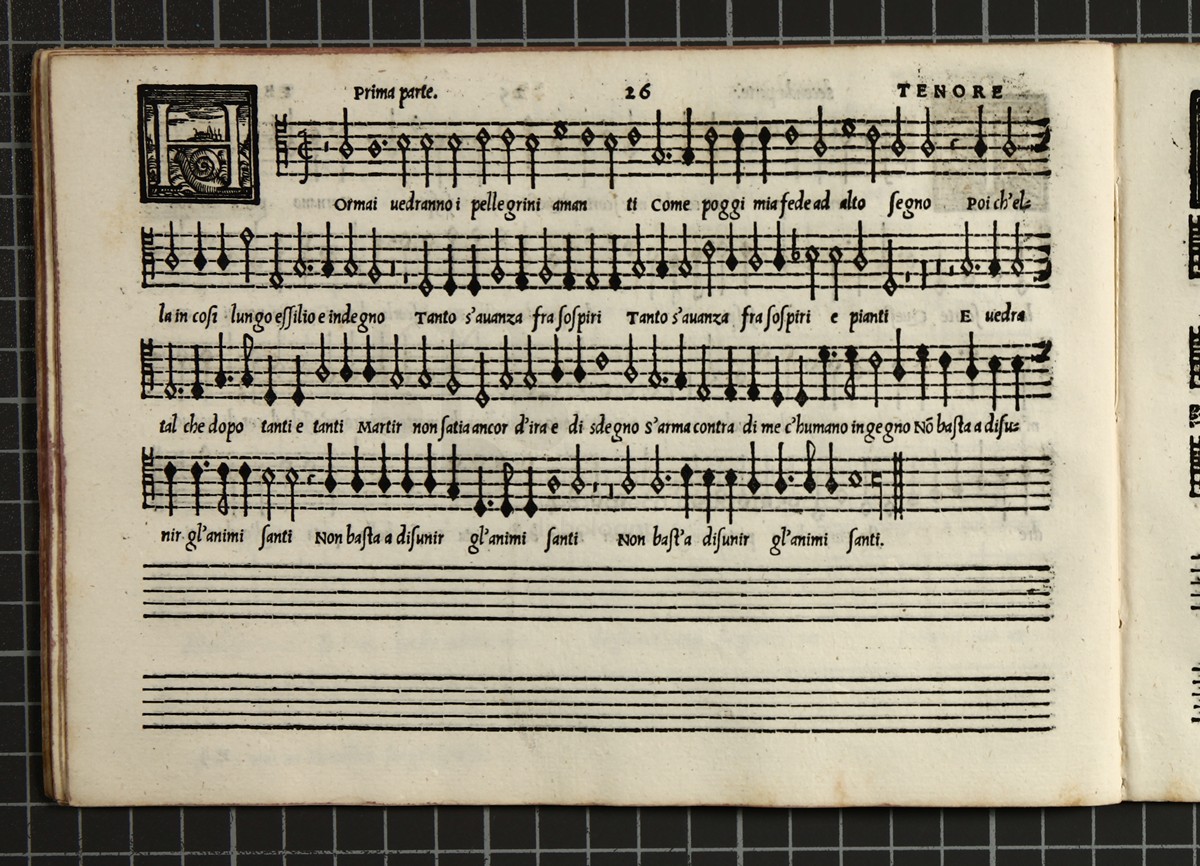 Prima parte. 26 TENORE
HOrmai uedranno i pellegrini aman ti Come poggi mia fede ad alto segno Poi ch'el-
la in cosi lungo essilio e indegno Tanto s'auanza fra sospiri Tanto s'auanza fra sospiri e pianti E uedra
tal che dopo tanti e tanti Martir non satia ancor d'ira e di sdegno S'arma contra di me c'humano ingegno Nõ basta a disu-
nir gl'animi santi Non basta a disunir gl'animi santi Non bast'a disunir gl'animi santi.